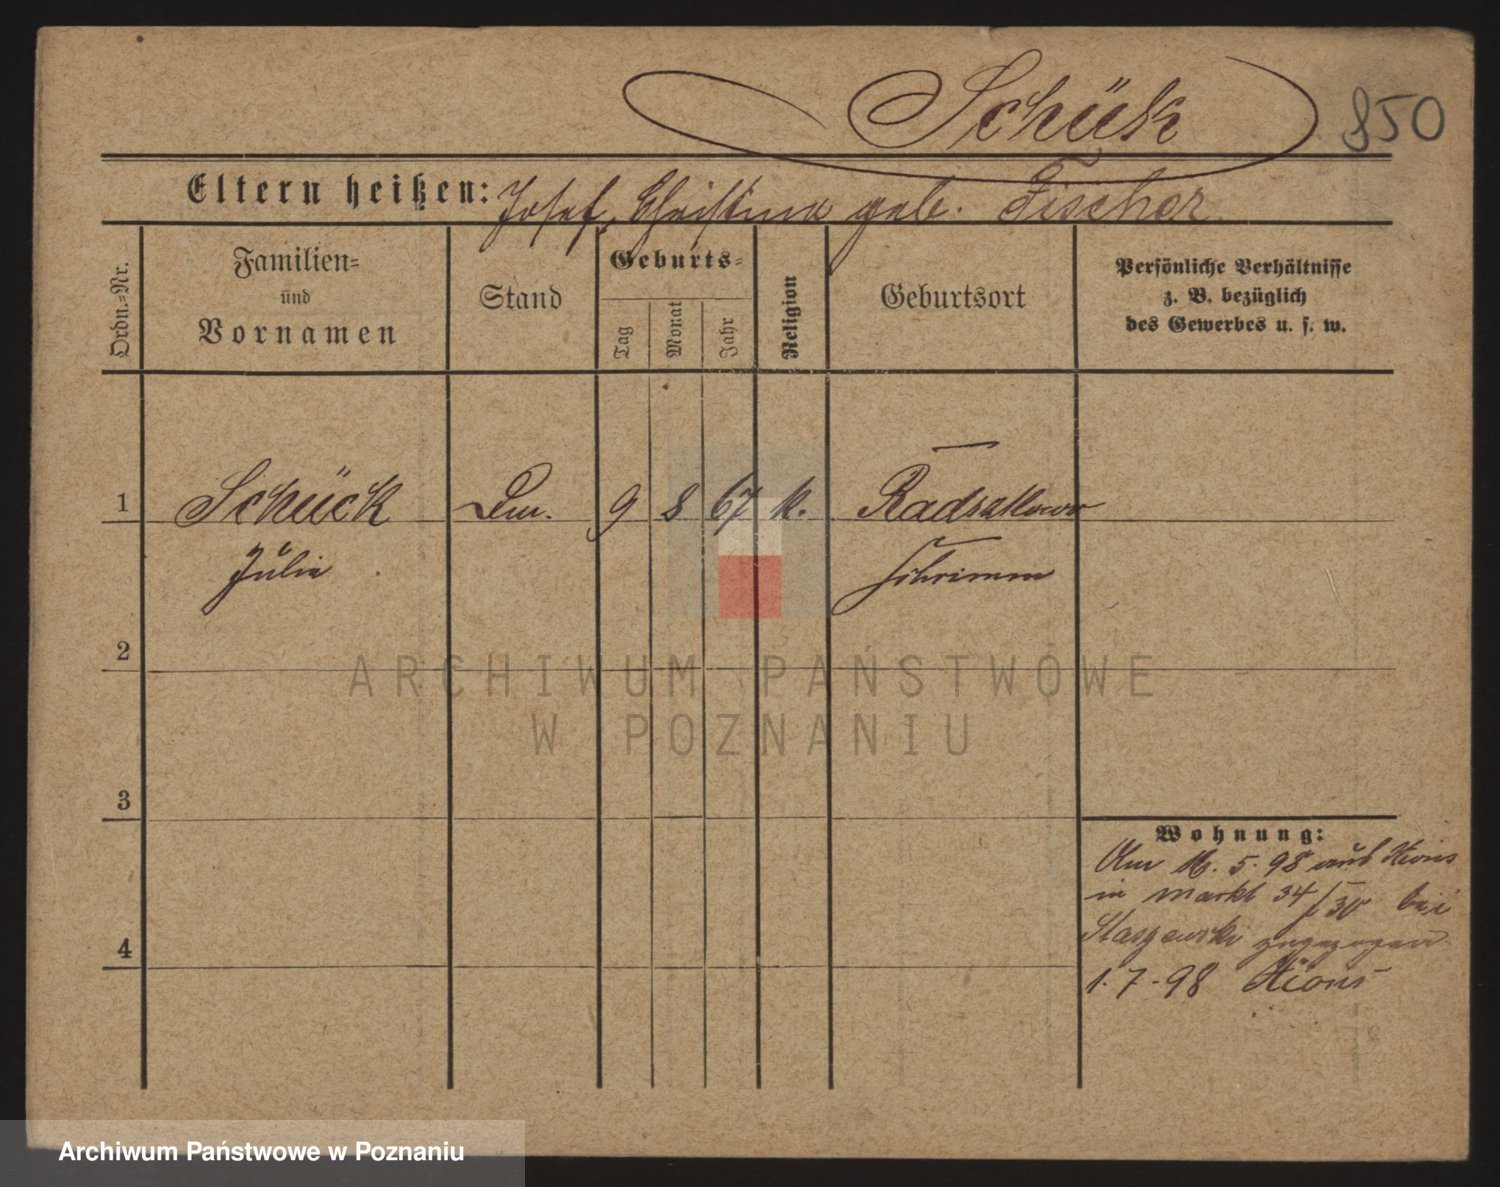 Schük 850
Eltern heißen: Josef, Christina geb. Fischer
Ordn.=Nr.
Familien=
und
Vornamen
Stand
Geburts=
Tag
Monat
Jahr
Religion
Geburtsort
Persönliche Verhältnisse
z. B. bezüglich
des Gewerbes u. s. w.
1 Schück 9 8 67 k.
Julie Schrimm
2
3
4
ARCHIWUM PAŃSTWOWE
W POZNANIU
Wohnung:
Am 16. 5. 98 aus Xions
in Markt 34/30 bei
zugezogen
1.7-98 Xions
Archiwum Państwowe w Poznaniu